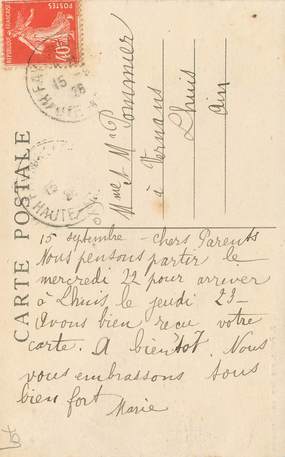 POSTES
REPUBLIQUE FRANÇAISE
40
15
26
HAUTE
CARTE POSTALE
Mme et Mr Pommier
à Vernans
Lhuis
Ain
15 septembre - Chers Parents
Nous pensons partir le
mercredi 22 pour arriver
à Lhuis le jeudi 23 -
Avons bien reçu votre
carte. A bientôt. Nous
vous embrassons tous
bien fort
Marie